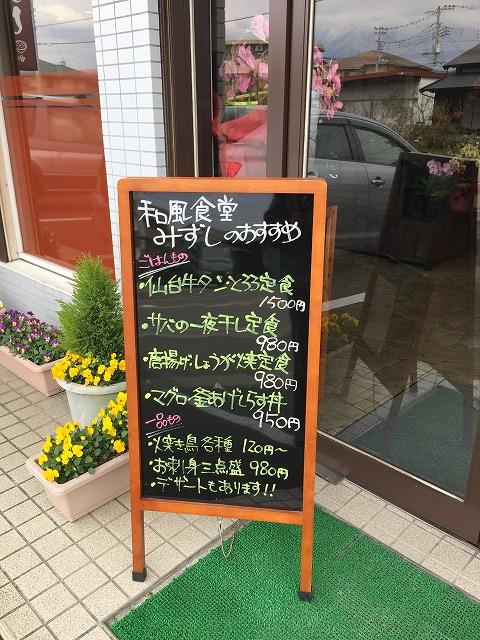 和風食堂
みずしのおすすめ
ごはんもの
・仙台牛タンとろろ定食
1500円
・サバの一夜干し定食
980円
・唐揚げ・しょうが焼定食
980円
・マグロ・釜あげしらす丼
950円
一品もの
・焼き鳥各種 120円〜
・お刺身三点盛 980円
・デザートもあります!!